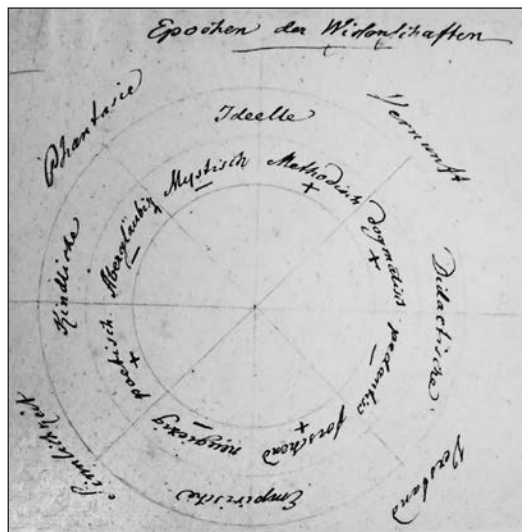 Epochen der Wißenschaften
Phantasie
Vernunft
Verstand
Sinnlichkeit
Ideelle
Didactische
Empirische
Kindliche
Mystisch
−
Methodisch
+
dogmatisch
+
pedantisch
−
forschend
+
neugierig
−
poetisch
+
Abergläubisch
−